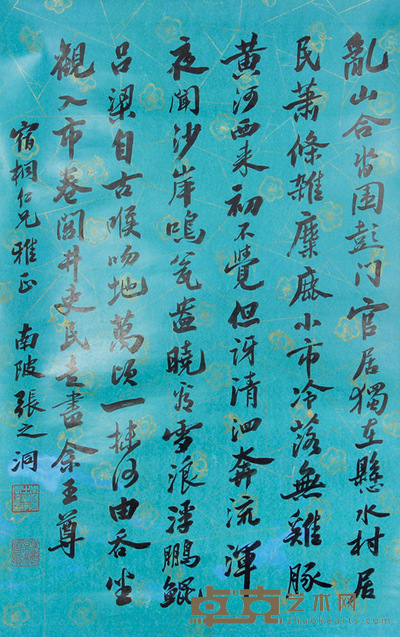 亂山合沓围彭门官居獨在懸水村居
民蕭條雜麋鹿小市冷落無雞豚
黄河西来初不覺但訝清泗奔流渾
夜聞沙岸鳴瓮盎曉看雪浪浮鵬鯤
吕梁自古喉吻地萬頃一抹何由吞坐
觀入市卷閭井吏民走盡余王尊
宿桐仁兄雅正 南陂張之洞
卓克艺术网